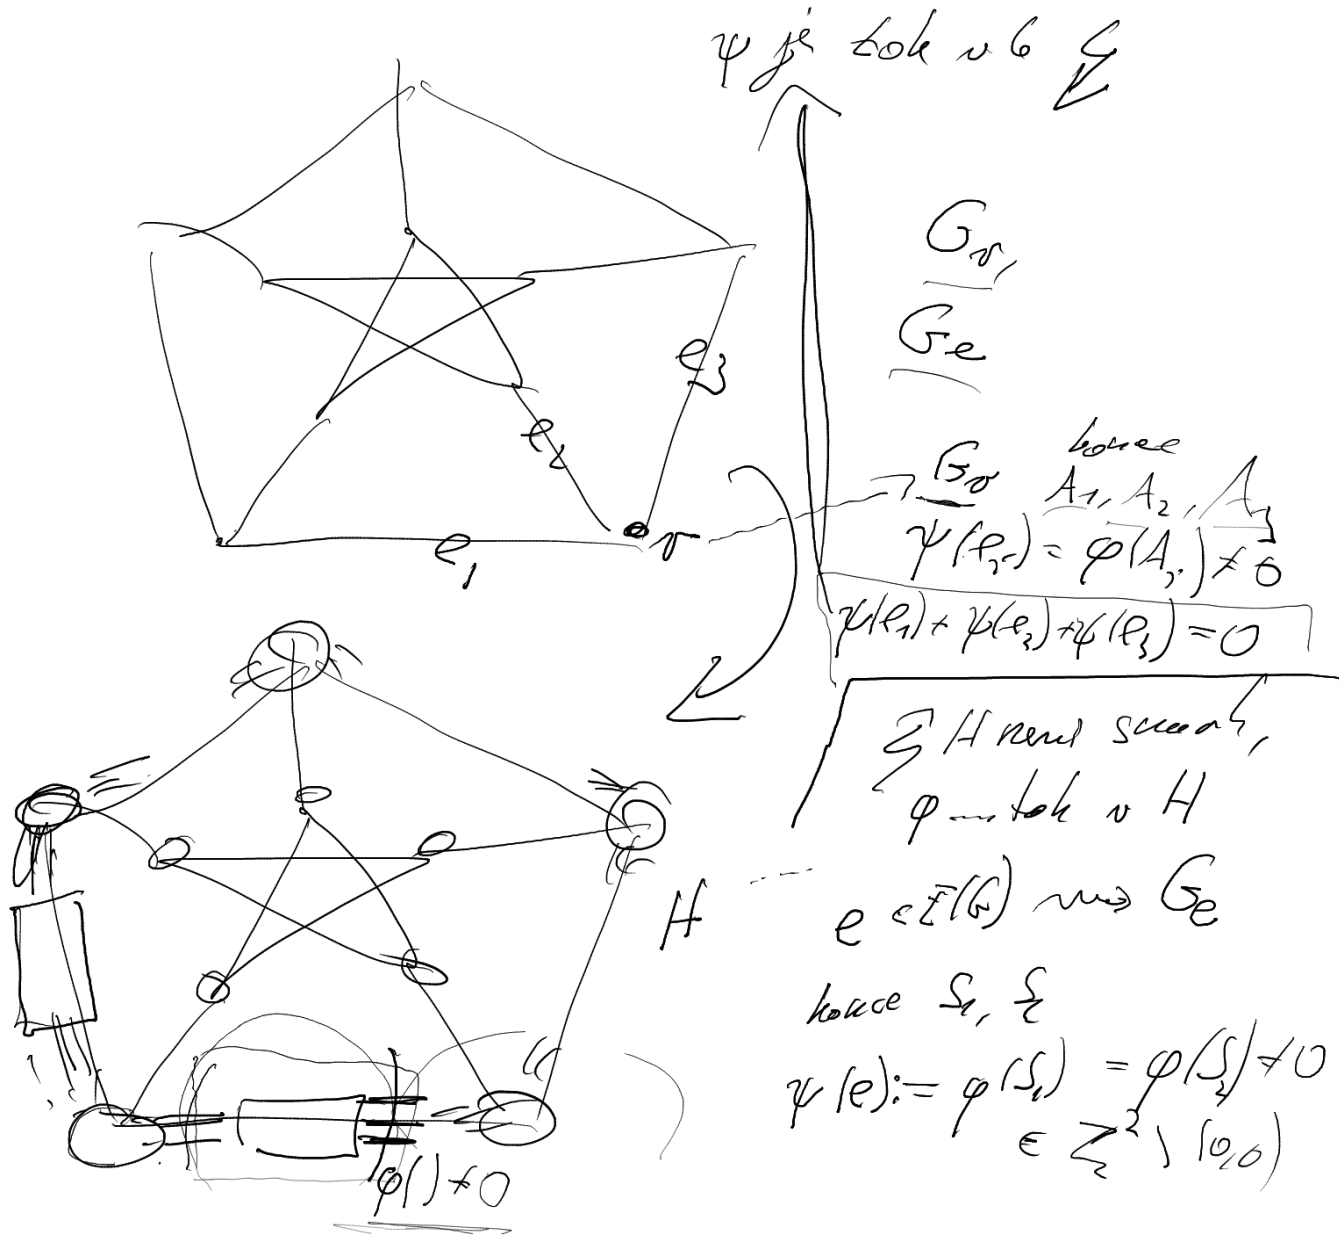 ψ je tok v G ↯
G_v,
G_e
e_3
e_2
G_v konce A_1, A_2, A_3
ψ(e_i) = φ(A_i) ≠ 0
v
e_1
ψ(e_1) + ψ(e_2) + ψ(e_3) = 0
H není snark,
φ … tok v H
H
e ∈ E(G) ⇝ G_e
konce S_1, S_2
ψ(e) := φ(S_1) = φ(S_2) ≠ 0
∈ Z_2^2 \ (0,0)
φ( ) ≠ 0